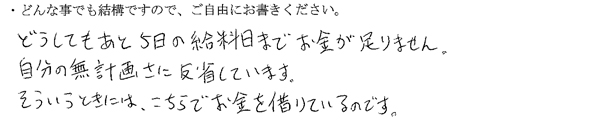 ・どんな事でも結構ですので、ご自由にお書きください。
どうしてもあと5日の給料日までお金が足りません。
自分の無計画さに反省しています。
そういうときには、こちらでお金を借りているのです。